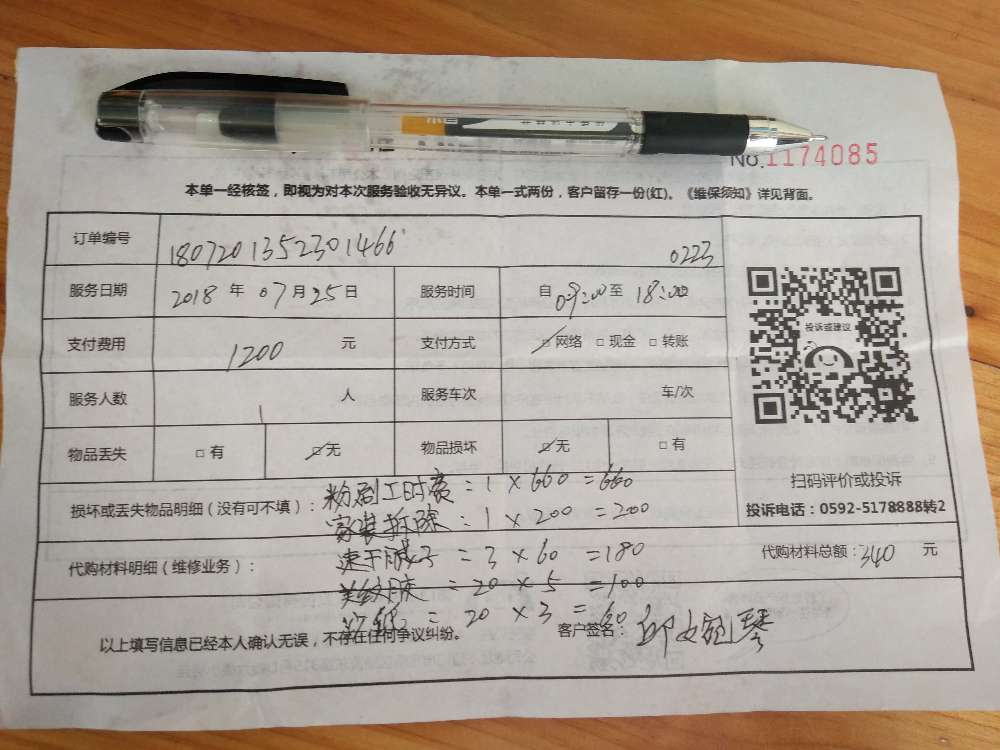 No.1174085
本单一经核签，即视为对本次服务验收无异议。本单一式两份，客户留存一份(红)。《维保须知》详见背面。
订单编号 1807201352301466 0223
服务日期 2018 年 07 月 25 日 服务时间 自 09:00 至 18:00
支付费用 1200 元 支付方式 ☑网络 □现金 □转账
投诉或建议
服务人数 1 人 服务车次 车/次
物品丢失 □有 ☑无 物品损坏 ☑无 □有
扫码评价或投诉
投诉电话：0592-5178888转2
损坏或丢失物品明细（没有可不填）：粉刷工时费：1×660=660
家装拆除：1×200=200
代购材料明细（维修业务）：速干腻子=3×60=180
代购材料总额：340 元
美纹胶=20×5=100
=20×3=60
以上填写信息已经本人确认无误，不存在任何争议纠纷。 客户签名：